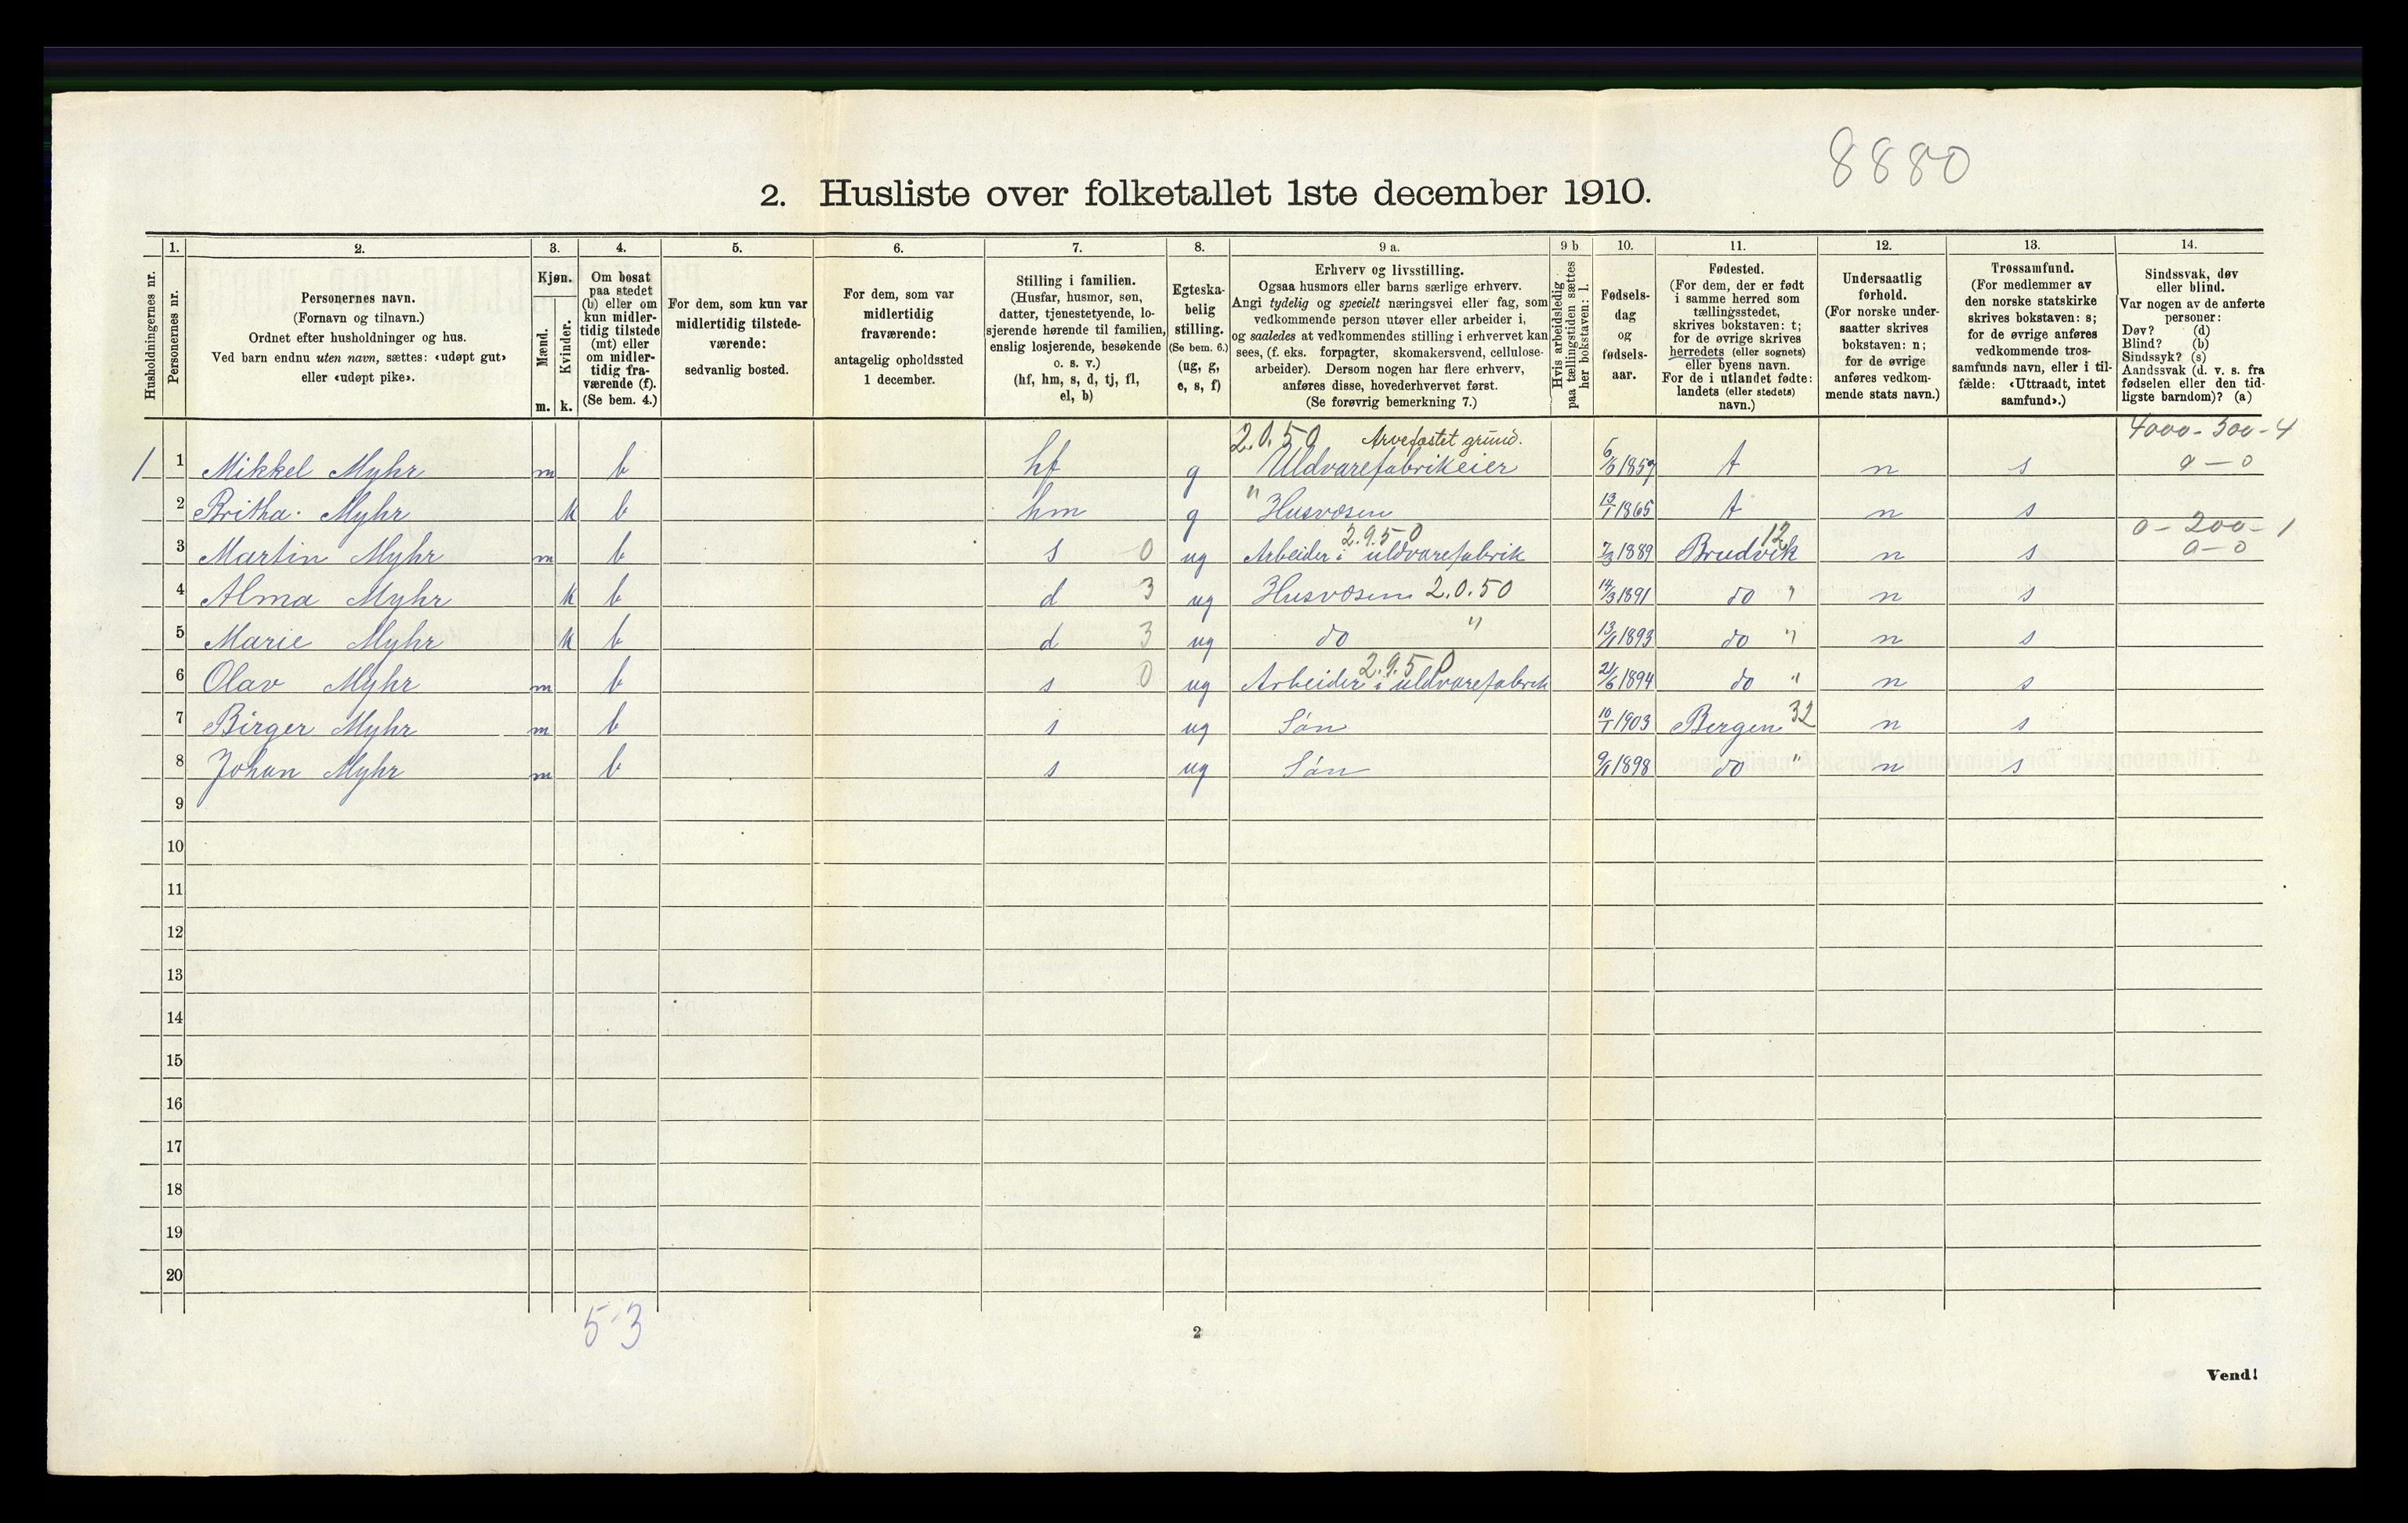 8880
2. Husliste over folketallet 1ste december 1910.
Husholdningernes nr.
1.
Personernes nr.
2.
Personernes navn.
(Fornavn og tilnavn.)
Ordnet efter husholdninger og hus.
Ved barn endnu uten navn, sættes: «udøpt gut»
eller «udøpt pike».
3.
Kjøn.
Mænd.
Kvinder.
m. k.
4.
Om bosat
paa stedet
(b) eller om
kun midler-
tidig tilstede
(mt) eller
om midler-
tidig fra-
værende (f).
(Se bem. 4.)
5.
For dem, som kun var
midlertidig tilstede-
værende:
sedvanlig bosted.
6.
For dem, som var
midlertidig
fraværende:
antagelig opholdssted
1 december.
7.
Stilling i familien.
(Husfar, husmor, søn,
datter, tjenestetyende, lo-
sjerende hørende til familien,
enslig losjerende, besøkende
o. s. v.)
(hf, hm, s, d, tj, fl,
el, b)
8.
Egteska-
belig
stilling.
(Se bem. 6.)
(ug, g,
e, s, f)
9 a.
Erhverv og livsstilling.
Ogsaa husmors eller barns særlige erhverv.
Angi tydelig og specielt næringsvei eller fag, som
vedkommende person utøver eller arbeider i,
og saaledes at vedkommendes stilling i erhvervet kan
sees, (f. eks. forpagter, skomakersvend, cellulose-
arbeider). Dersom nogen har flere erhverv,
anføres disse, hovederhvervet først.
(Se forøvrig bemerkning 7.)
9 b
Hvis arbeidsledig
paa tællingstiden sættes
her bokstaven: l.
10.
Fødsels-
dag
og
fødsels-
aar.
11.
Fødested.
(For dem, der er født
i samme herred som
tællingsstedet,
skrives bokstaven: t;
for de øvrige skrives
herredets (eller sognets)
eller byens navn.
For de i utlandet fødte:
landets (eller stedets)
navn.)
12.
Undersaatlig
forhold.
(For norske under-
saatter skrives
bokstaven: n;
for de øvrige
anføres vedkom-
mende stats navn.)
13.
Trossamfund.
(For medlemmer av
den norske statskirke
skrives bokstaven: s;
for de øvrige anføres
vedkommende tros-
samfunds navn, eller i til-
fælde: «Uttraadt, intet
samfund».)
14.
Sindssvak, døv
eller blind.
Var nogen av de anførte
personer:
Døv? (d)
Blind? (b)
Sindssyk? (s)
Aandssvak (d. v. s. fra
fødselen eller den tid-
ligste barndom)? (a)
2.0.50 Arvefæstet grund. 4000-300-4
1 1 Mikkel Myhr m b hf g Uldvarefabrikeier 1859 t n s 0-0
2 Britha Myhr k b hm g " Husvæsen 13/1 1865 t n s
2.9.50 12 0-200-1
3 Martin Myhr m b s 0 ug Arbeider i uldvarefabrik 7/3 1889 Brudvik n s 0-0
4 Alma Myhr k b d 3 ug Husvæsen 2.0.50 14/3 1891 do " n s
5 Marie Myhr k b d 3 ug do " 1893 do " n s
2.9.50
6 Olav Myhr m b s 0 ug Arbeider i uldvarefabrik 21/6 1894 do " n s
7 Birger Myhr m b s ug Søn 10/1 1903 Bergen 32 n s
8 Johan Myhr m b s ug Søn 1898 do " n s
9
10
11
12
13
14
15
16
17
18
19
20
5-3
2
Vend!